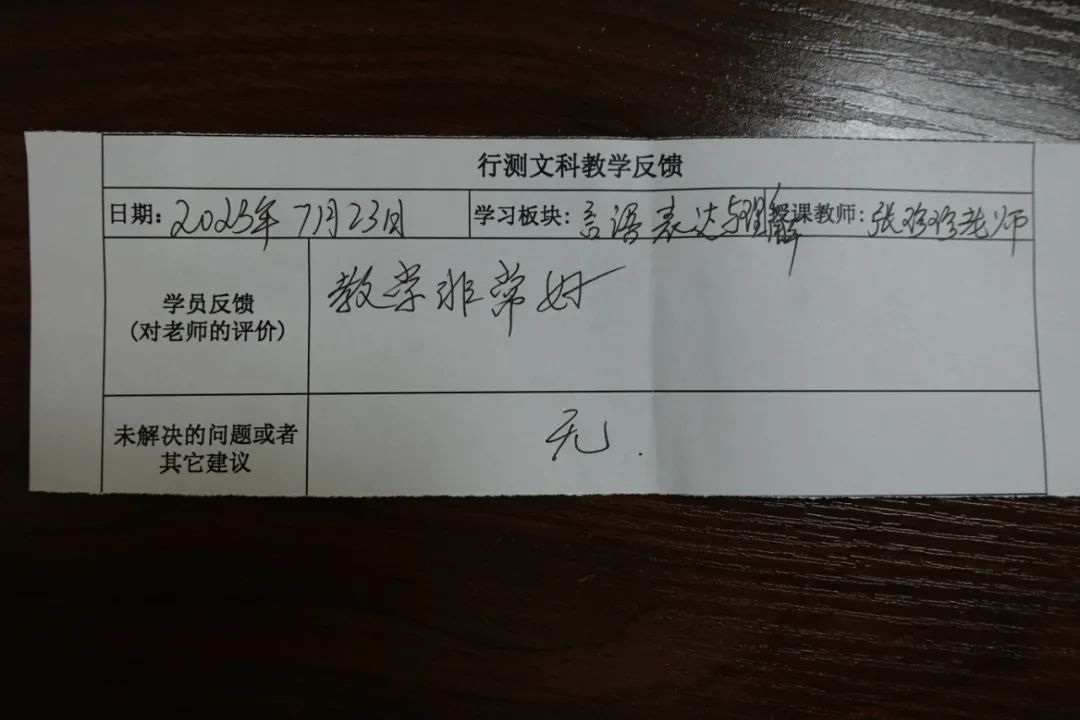 行测文科教学反馈
日期：2023年7月23日 学习板块：言语表达与理解 授课教师：张珍珍老师
学员反馈
(对老师的评价)
教学非常好
未解决的问题或者
其它建议
无.